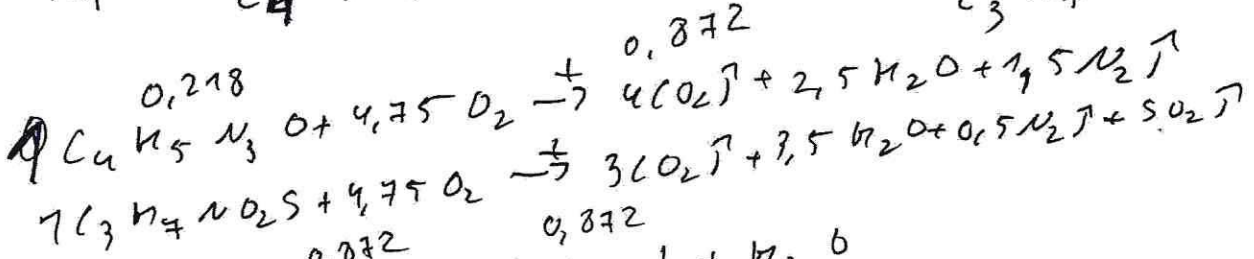 0,218 0,872
C₄H₅N₃O + 4,75O₂ →ᵗ 4CO₂↑ + 2,5H₂O + 1,5N₂↑
1C₃H₇NO₂S + 4,75O₂ →ᵗ 3CO₂↑ + 3,5H₂O + 0,5N₂↑ + SO₂↑
0,872 0,872